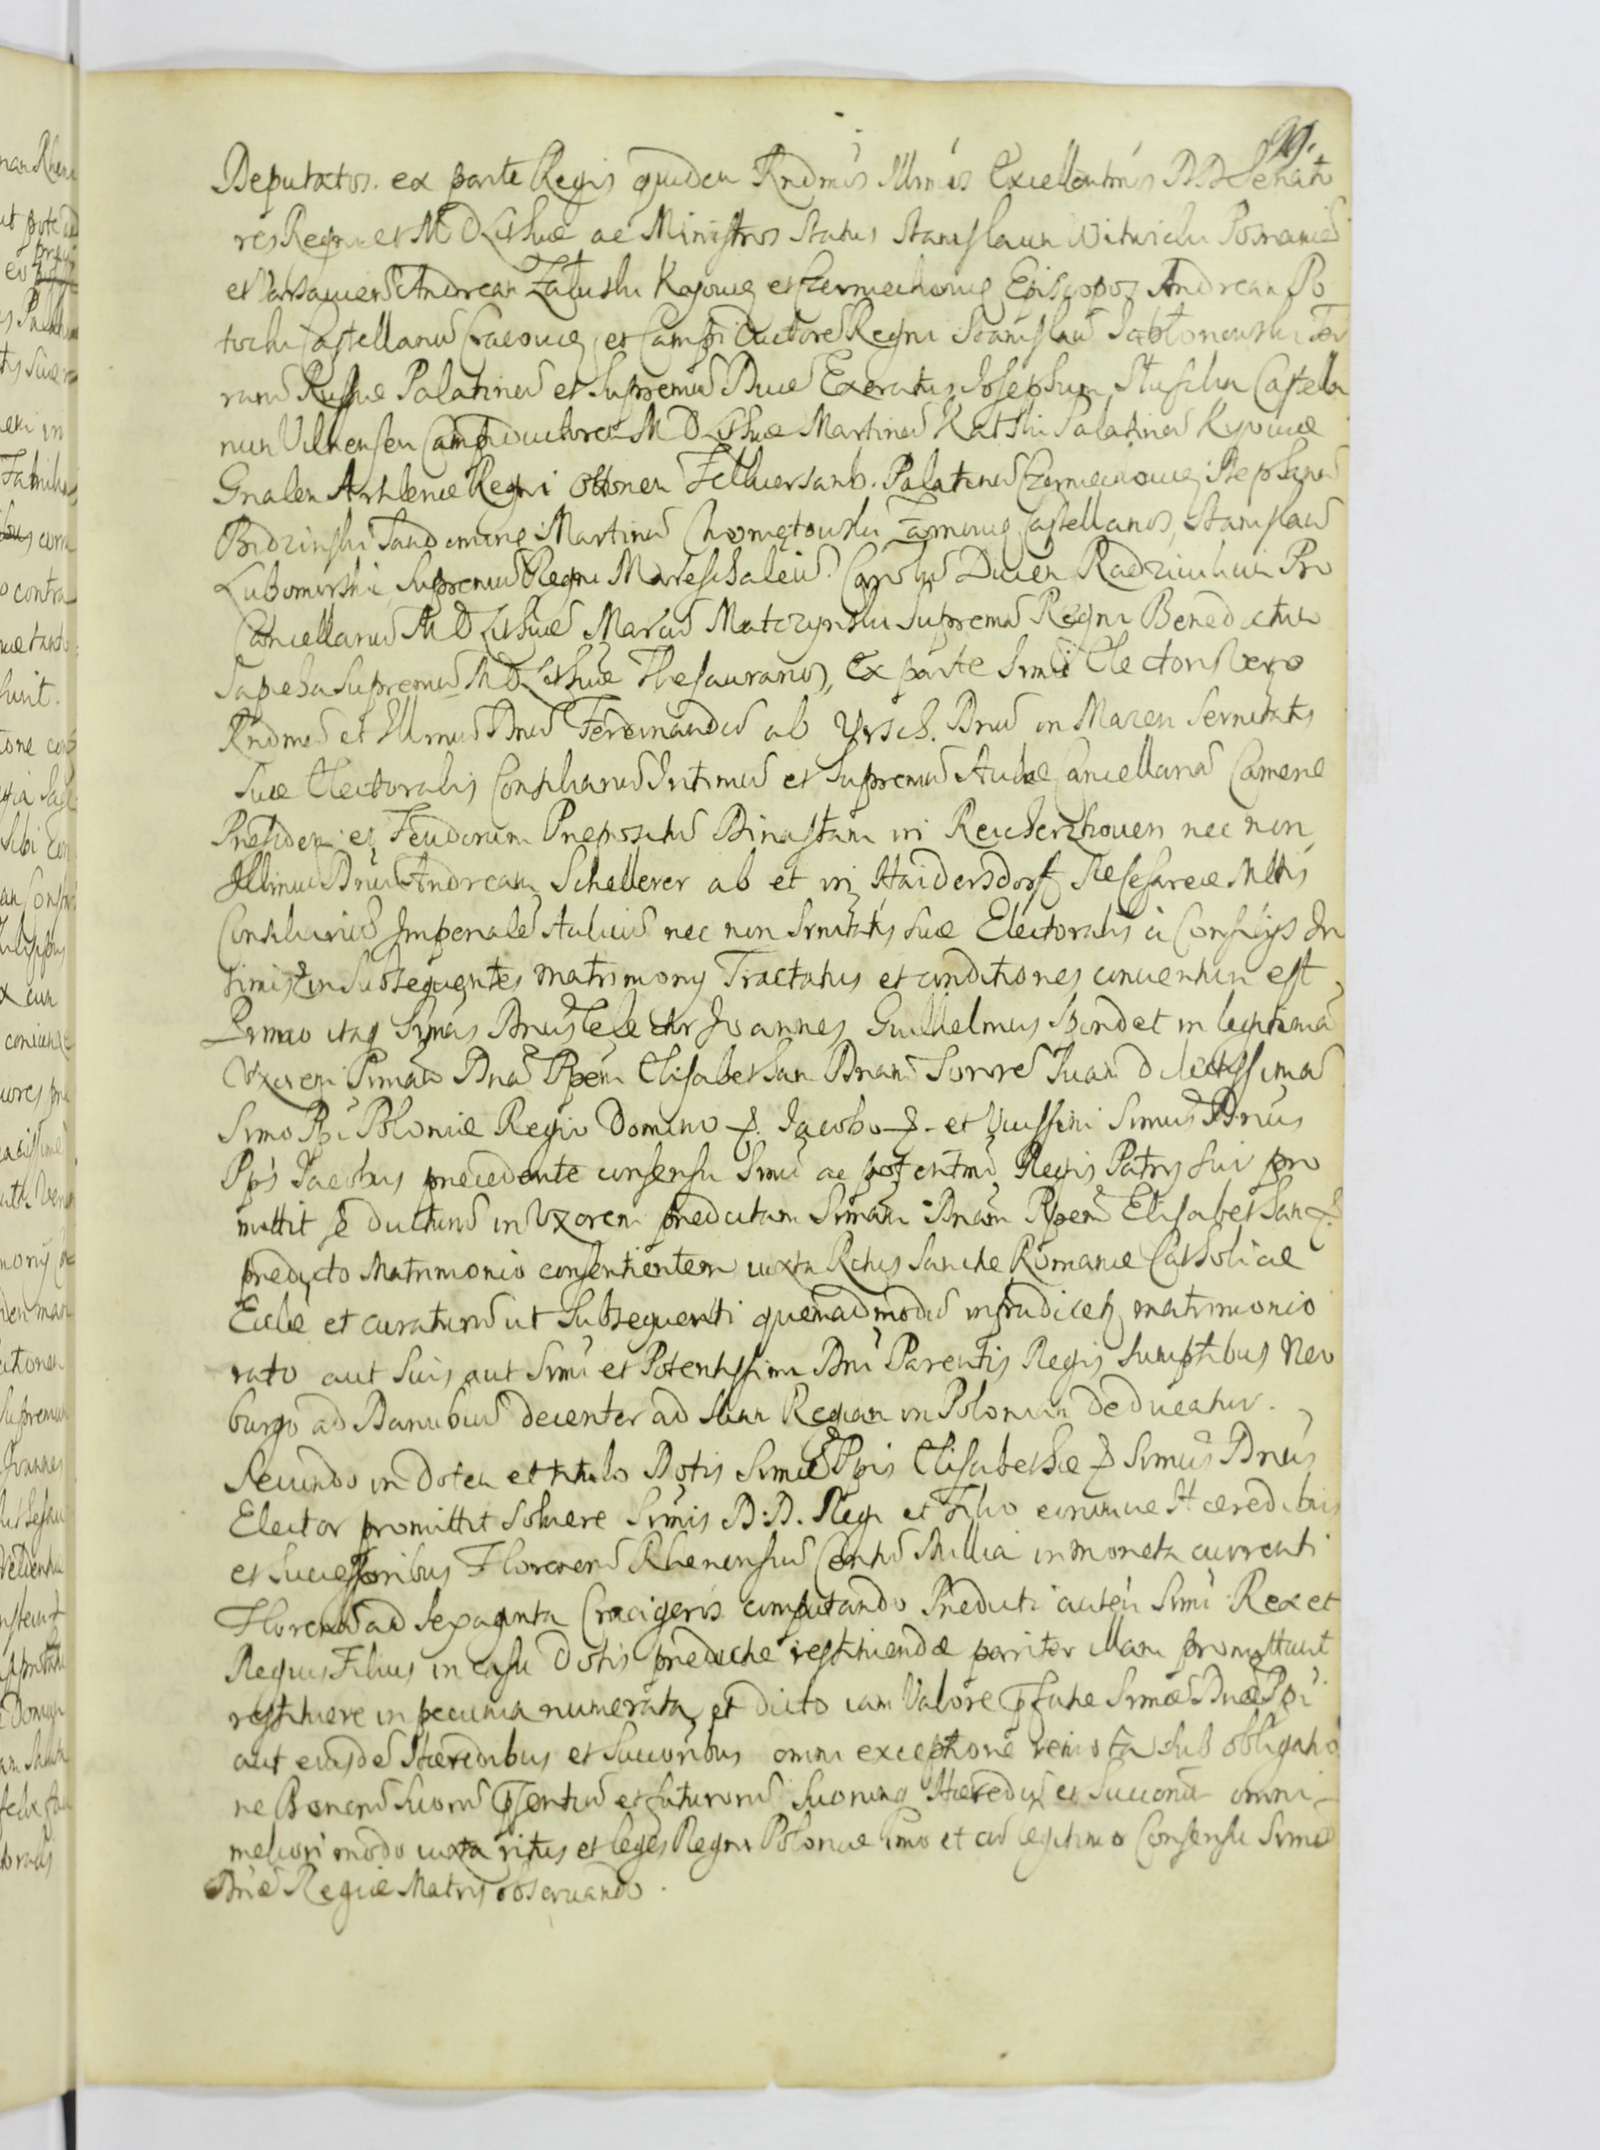 99.
Deputatos. ex parte Regis quidem Rndmos Illmos Excellentmos D.D. Senato
res Regni et M D Lithuae ac Ministros Status Stanislaum Witwicki Posnaniē
et Varsaviens Andream Załuski Kyoviȩ et Czerniechoviȩ Episcopos Andream Po
tocki Castellanū Cracoviȩ et Campi Ductorē Regni Stanislaū Jabłonowski Ter
rarū Russiae Palatinū et Supremū Ducē Exercitus Josephum Słuszka Castella
num Vilnensem Campiductorem M D Lithuae Martinū Katski Palatinū Kyoviae
Gnalem Arthleriae Regni Ottonem Felkiersamb. Palatinū Czerniechoviȩ Stephanū
Bidzinski Sandomiriȩ Martinū Chomętowski Zarnoviȩ Castellanos, Stanislaū
Lubomirski Supremū Regni Mareschalcū. Carolū Ducem Radziwiłium Pro
Cancellariū M D Lithuae Marcū Matczynski Supremū Regni Benedictum
Sapeha Supremū M D Lithuae Thesaurarios, Ex parte Srmi Electoris Vero
Rndmū et Illmū Dnū Ferdinandū ab Yrsch. Dnū in Mazen Sernitatis
Suae Electoralis Consiliariū Intimū et Supremū Aulae Cancellariū Camerae
Presidem et Feudorum Prepositū Dinastam in Reicherzhoven nec non
Illmū Dnū Andream Schellerer ab et in Haidersdorf Sac Cesareae Mttis
Consiliariū Imperialē Aulicū nec non Srnitatis Suae Electoralis à Consilijs In
timis in Subsequentes matrimonij Tractatus et conditiones conventum est
Primo itaq Srmus Dnus Elector Joannes Guilhelmus Spondet in legitimā
Uxorem Srmam Dnā Ppem Elisabetham Dnam Sororē Suam dilectissimā
Srmo Ppi Poloniae Regio Domino &. Jacobo &. et Vicissim Srmus Dnus
Pps Jacobus precedente consensu Srmi ac potentmi Regis Patris sui pro
mittit se ducturū in Uxorem predictam Srmam Dnam Ppem Elisabetham &.
predicto Matrimonio consentientem iuxta Ritus Sanctae Romanae Catholicae
Eccliae et curaturū ut Subsequenti quemadmodū infradicetȝ matrimonio
rato aut Suis aut Srmi et Potentissimi Dni Parentis Regis Sumptibus Neo
burgo ad Danubium decenter ad Suam Regiam in Poloniam deducatur.
Secundo in Dotem et titulo Dotis Srmae Ppis Elisabethae & Srmus Dnus
Elector promittit Solvere Srmis D.D. Regi et Filio eorumve Haeredibus
et Successoribus Florenorū Rhenensiū Centū Millia in moneta currenti
Florenū ad Sexaginta Crucigeros computando Predicti autem Srmi Rex et
Regius Filius in casu Dotis predictae restituendae pariter illam promittunt
restituere in pecunia numerata et dicto iam Valore pfatae Srmae Dnae Ppi
aut eiusdē Haeredibus et Succoribus omni exceptione remota sub obligatio
ne Bonorū Suorū psentiū et futurorū Suorumq Haeredū et Succorū omni
meliori modo iuxta ritus et leges Regni Poloniae Imo et cū legitimo Consensu Srmae
Dnae Reginae Matris observando.